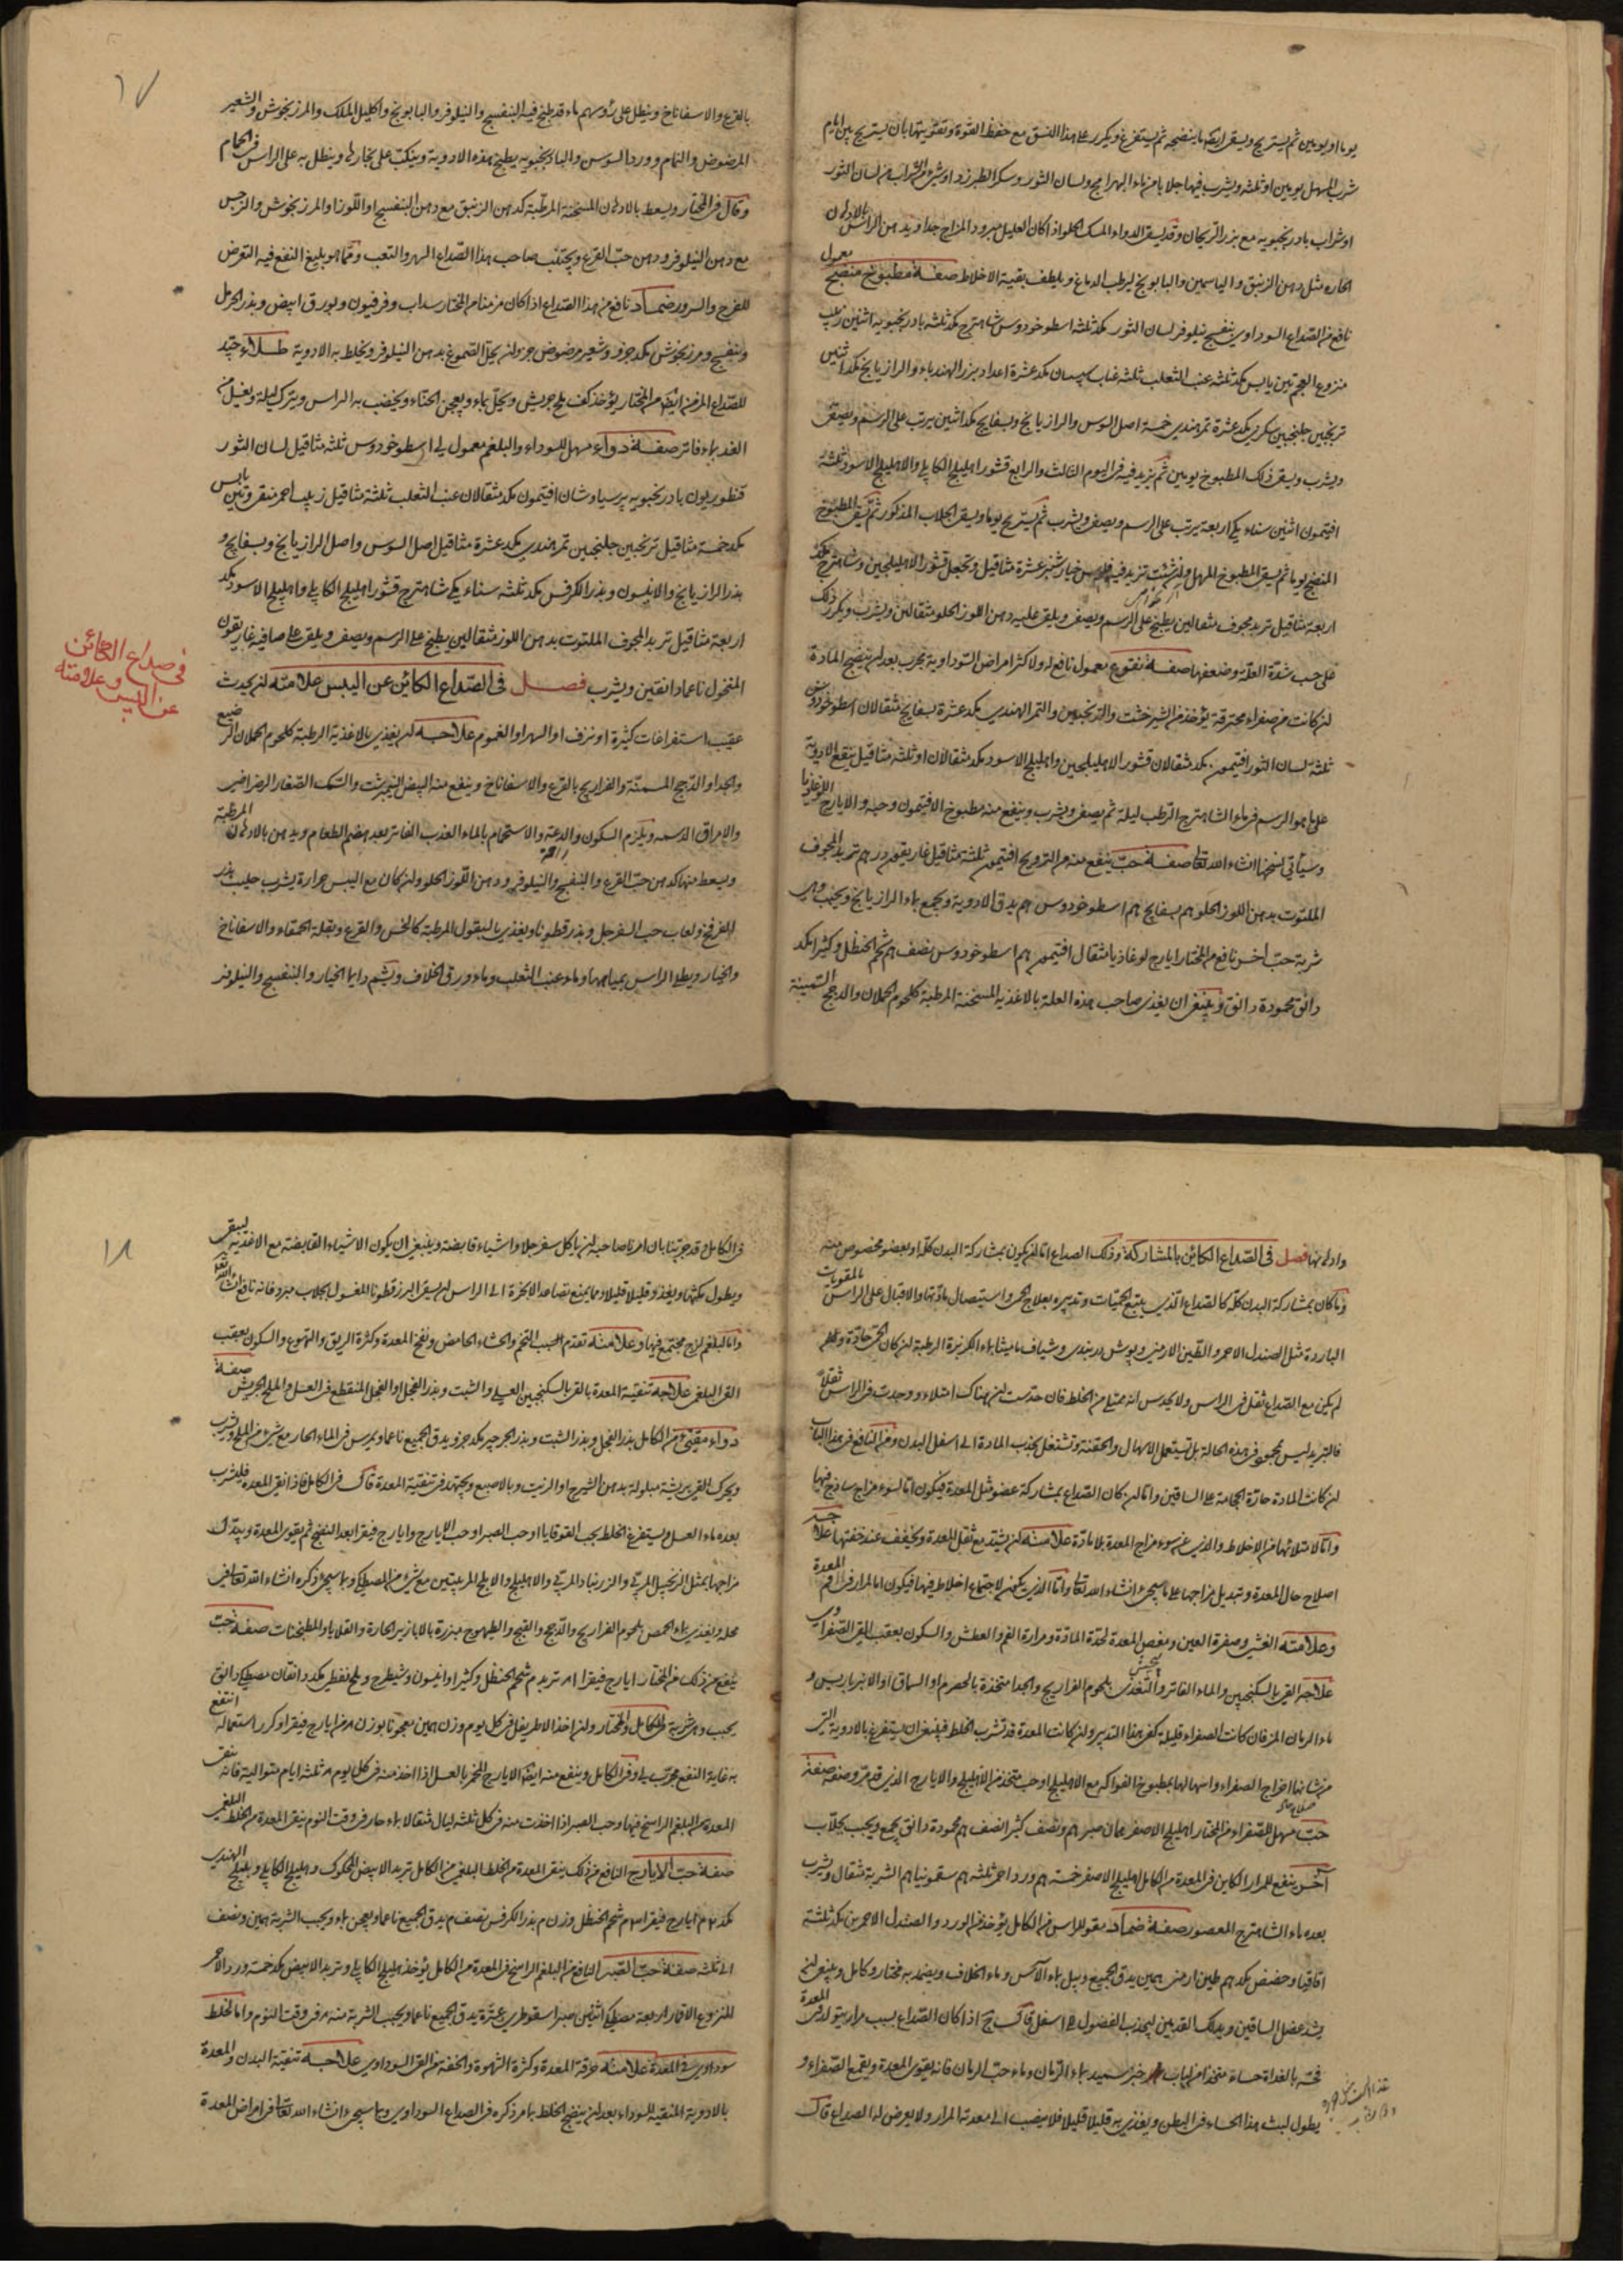 يوما او يومين ثم يستريح ويسقى ايضا ما ينضجه ثم يستفرغ ويكرر على هذا النسق مع حفظ القوة وتقويتها بان يستريح بين ايام
شرب المسهل يومين او ثلثة ويشرب فيها جلابا من ماء البهرامج ولسان الثور وسكر الطبرزد او شىء من الشراب من لسان الثور
او شراب بادرنجبويه مع بزر الريحان وقد يسقى الدواء المسك الحلو اذا كان العليل مبرود المزاج جدا ويدهن الراس بالادهان
الحاره مثل دهن الزنبق والياسمين والبابونج ليرطب الدماغ ويلطف بقية الاخلاط صفة مطبوخ منضج معمول
نافع من الصداع السوداوى بنفسج نيلوفر لسان الثور مكد ثلثه اسطوخودوس شاهترج مكد ثلثه بادرنجبويه اثنين زبيب
منزوع العجم تين يابس مكد ثلثه عنب الثعلب ثلثه عناب سپستان مكد عشرة اعداد بزر الهندباء والرازيانج مكد اثنين
ترنجبين جلنجبين سكرى مكد عشرة تمر هندى خمسة اصل السوس والرازيانج وبسفايج مكد اثنين يرتب على الرسم ويصفى
ويشرب ويسقى ذلك المطبوخ يومين ثم يزيد فيه فى اليوم الثالث والرابع قشور اهليلج الكابلى والاهليلج الاسود ثلثة
افتيمون اثنين سناء مكى اربعة يرتب على الرسم ويصفى ويشرب ثم يستريح يوما ويسقى الجلاب المذكور ثم يسقى المطبوخ
المنضج يوما ثم يسقى المطبوخ المسهل وان شئت تزيد فيه فلوس خيارشنبر عشرة مثاقيل وتجعل قشور الاهليلجين وشاهترج مكد
اربعة مثاقيل تربد مجوف مثقالين يطبخ على الرسم ويصفى ويلقى عليه دهن اللوز الحلو مثقالين ويشرب ويكرر ذلك
على حسب شدة العلة وضعفها صفة نقوع معمول نافع له ولاكثر امراض السوداوية مجرب بعد ان ينضج المادة
ان كانت من صفراء محترقة يؤخذ من الشيرخشت والترنجبين والتمر الهندى مكد عشرة بسفايج مثقالان اسطوخودوس
ثلثة لسان الثور افتيمون مكد مثقالان قشور الاهليلجين واهليلج الاسود مكد مثقالان او ثلثه مثاقيل ينقع الادوية
على ما هو الرسم فى ماء الشاهترج الرطب ليلة ثم يصفى ويشرب وينفع منه مطبوخ الافتيمون وحبه والايارج اللوغاذيا
وسيأتى نسخها انشاء الله تعا صفة حب ينفع منه من الترويح افتيمون ثلثة مثاقيل غاريقون درهم تربد المجوف
الملتوت بدهن اللوز الحلو هم بسفايج هم اسطوخودوس هم يدق الادوية ويجمع بماء الرازيانج ويحبب وهى
شربة حب اخر نافع من المختار ايارج لوغاذيا مثقال افتيمون هم اسطوخودوس نصف هم شحم الحنظل وكثيرا مكد
دانق محمودة دانق وينبغى ان يغذى صاحب هذه العلة بالاغذية المسخنة المرطبة كلحوم الحملان والدجج السمينة
١٧
بالقرع والاسفاناخ وينطل على رؤسهم ماء قد طبخ فيه البنفسج والنيلوفر والبابونج واكليل الملك والمرزنجوش والشعير
المرضوض والنمام وورد السوسن والبادرنجبويه يطبخ هذه الادوية وينكب على بخارها وينطل به على الراس فى الحمام
وقال فى المختار ويسعط بالادهان المسخنة المرطبة كدهن الزنبق مع دهن البنفسج او اللوز او المرزنجوش والنرجس
مع دهن النيلوفر ودهن حب القرع ويجتنب صاحب هذا الصداع السهر والتعب ومما هو بليغ النفع فيه التعرض
للفرح والسرور ضماد نافع من هذا الصداع اذا كان مزمنا من المختار سداب وفرفيون وبورق ابيض وبذر الحرمل
وبنفسج ومرزنجوش مكد جزو وشعير مرضوض جزو ان يحل الصموغ بدهن النيلوفر ويخلط به الادوية طلاء جيد
للصداع المزمن ايضا من المختار يؤخذ كف ملح جريش ويحل بماء ويعجن الحناء ويخضب به الراس ويترك ليلة ويغسل من
الغد بماء فاتر صفة دواء مسهل للسوداء والبلغم معمول لى اسطوخودوس ثلثه مثاقيل لسان الثور
قنطوريون بادرنجبويه پرسياوشان افتيمون مكد مثقالان عنب الثعلب ثلثة مثاقيل زبيب احمر منقى وتين يابس
مكد خمسة مثاقيل ترنجبين جلنجبين تمر هندى مكد عشرة مثاقيل اصل السوس واصل الرازيانج وبسفايج و
بذر الرازيانج والانيسون وبذر الكرفس مكد ثلثه سناء مكى شاهترج قشور اهليلج الكابلى واهليلج الاسود مكد
اربعة مثاقيل تربد المجوف الملتوت بدهن اللوز مثقالين يطبخ على الرسم ويصفى ويلقى على صافيه غاريقون
المنخول ناعما دانقين ويشرب فصل فى الصداع الكائن عن اليبس علامته ان يحدث
فى صداع الكائن
عن اليبس وعلامته
عقيب استفراغات كثيرة او نزف او السهر او الغموم علاجه ان يغذى بالاغذية الرطبة كلحوم الحملان الرضيع
والجداء والدجج المسمنة والفراريج بالقرع والاسفاناخ وينفع منه البيض النيمرشت والسمك الصغار الرضراضى
والامراق الدسمه ويلزم السكون والدعة والاستحمام بالماء العذب الفاتر بعد هضم الطعام ويدهن بالادهان المرطبة
ويسعط منها كدهن حب القرع والبنفسج والنيلوفر ودهن اللوز الحلو وان كان مع اليبس حرارة يشرب حليب بذر
الفرفخ ولعاب حب السفرجل وبذر قطونا ويغذى بالبقول المرطبة كالخس والقرع وبقلة الحمقاء والاسفاناخ
والخيار ويطلى الراس بمياهها وماء عنب الثعلب وماء ورق الخلاف ويشم دايما الخيار والبنفسج والنيلوفر
وادهانها فصل فى الصداع الكائن بالمشاركة وذلك الصداع اما ان يكون بمشاركة البدن كله او بعضو مخصوص منه
وما كان بمشاركة البدن كله كالصداع الذى يتبع الحميات وتدبيره بعلاج الحمى واستيصال مادتها والاقبال على الراس بالمقويات
الباردة مثل الصندل الاحمر والطين الارمنى وپوش دربندى وشياف ماميثا بماء الكزبرة الرطبة ان كان الحمى حادة
لم يكن مع الصداع ثقل فى الراس ولا يحدس انه ممتلى من الخلط فان حدست ان هناك امتلاء ووجدت فى الراس ثقلا
فالتبريد ليس بمحمود فى هذه الحالة بل تستعمل الاسهال والحقنة وتشتغل بجذب المادة الى اسفل البدن ومن النافع فى هذا الباب
ان كانت المادة حادة الحجامة على الساقين واما ان كان الصداع بمشاركة عضو مثل المعدة فيكون اما لسوء مزاج ساذج فيها
واما لامتلائها من الاخلاط والذى عن سوء مزاج المعدة بلا مادة علامته ان يشتد مع ثقل المعدة ويخفف عند خفتها علاجه
اصلاح حال المعدة وتبديل مزاجها على ما سيجئ انشاء الله تعا واما الذى يكون لاجتماع اخلاط فيها فيكون اما لمرار فى فم المعدة
وعلامته الغشى وصفرة العين ومغص المعدة لحدة المادة ومرارة الفم والعطش والسكون بعقب القى الصفراوى
علاجه القى بالسكنجبين والماء الفاتر والتغذى بلحوم الفراريج والجدا متخذة بالحصرم او السماق او الانبرباريس و
ماء الرمان المز فان كانت الصفراء قليلة كفى هذا التدبير وان كانت المعدة قد تشرب الخلط فينبغى ان يستفرغ بالادوية التى
من شانها اخراج الصفراء واسهالها بمطبوخ الفواكه مع الاهليلج او حب متخذ من الاهليلج والايارج الذى قد مر وصفه صفة
حب مسهل للصفراء من المختار اهليلج الاصفر هم ونصف كثيرا نصف هم محمودة دانق يجمع ويحبب بجلاب
آخر ينفع للمرار الكاين فى المعدة من الكامل اهليلج الاصفر خمسة هم ورد احمر ثلثه هم سقمونيا هم الشربة مثقال ويشرب
بعده ماء الشاهترج المعصور صفة ضماد مقو للراس من الكامل يؤخذ من الورد والصندل الاحمر من مكد ثلثة
اقاقيا وحضض مكد هم طين ارمنى همين يدق الجميع ويبل بماء الآس وماء الخلاف ويضمد به مختار وكامل وينبغى ان
يشد عضل الساقين ويدلك القدمين ليجذب الفضول الى اسفل قال ج اذا كان الصداع بسبب مرار يتولد فى المعدة
فحسه بالغداة حساء متخذ من لباب خبز سميد بماء الرمان وماء حب الرمان فانه يقوى المعدة ويقمع الصفراء و
يطول لبث هذا الحساء فى البطن ويغذى به قليلا قليلا فلا ينصب الى معدته المرار ولا يعرض له الصداع قال
١٨
فى الكامل قد جربنا بان امرنا صاحبه ان ياكل سفرجلا واشياء قابضة وينبغى ان يكون الاشياء القابضة مع الاغذية ليبقى
ويطول مكثها ويغذو قليلا قليلا ومما يمنع تصاعد الابخرة الى الراس ان يسقى البزر قطونا المغسول بجلاب مبرد فانه نافع انشاء الله تعا
واما لبلغم لزج مجتمع فيها وعلامته تقدم السبب التخم والجشاء الحامض ونفخ المعدة وكثرة الريق والتهوع والسكون بعقب
القى البلغمى علاجه تنقية المعدة بالقى بالسكنجبين العسلى والشبت وبذر الفجل او الفجل المنقطع فى العسل والملح الجريش صفة
دواء مقيئ من الكامل بذر الفجل وبذر الشبت وبذر الجرجير مكد جزو يدق الجميع ناعما ويمرس فى الماء الحار مع شىء من الملح ويشرب
ويحرك القى بريشة مبلولة بدهن الشيرج او الزيت وبالاصبع ويجتهد فى تنقية المعدة قال فى الكامل فاذا نقى المعدة فليشرب
بعده ماء العسل ويستفرغ الخلط بحب القوقايا او حب الصبر او حب الايارج وايارج فيقرا بعد النضج ثم يقوى المعدة ويبدل
مزاجها بمثل الزنجبيل المربى والزرنباد المربى والاهليلج والابلج المربيين مع شىء من المصطكى وما سيجئ ذكره انشاء الله تعا فى
محله ويغذى بماء الحمص بلحوم الفراريج والدجج والقبج والطيهوج مبزرة بالابازير الحارة والقلايا والمطبخنات صفة حب
ينفع من ذلك من المختار ايارج فيقرا تربد شحم الحنظل وكثيرا وانيسون وشيطرج وملح نفطى مكد دانقان مصطكى دانق
يحبب وهى شربة الكامل والمختار وان اخذ الاطريفل فى كل يوم وزن همين معجونا بوزن من ايارج فيقرا وكرر استعماله انتفع
به غاية النفع مجرب لى وفى الكامل وينفع منه ايضا الايارج المخمر بالعسل اذا اخذ منه فى كل يوم ثلثه ايام متوالية فانه ينقى
المعدة من البلغم الراسخ فيها وحب الصبر اذا اخذت منه فى كل ثلثه ليال مثقالا بماء حار فى وقت النوم ينقى المعدة من الخلط البلغمى
صفة حب الايارج النافع من ذلك ينقى المعدة من الخلط البلغمى من الكامل تربد الابيض المحكوك واهليلج الكابلى وبليلج الهندى
مكد ايارج فيقرا شحم الحنظل وزن بذر الكرفس نصف يدق الجميع ناعما ويعجن بماء ويحبب الشربة همين ونصف
الى ثلثه صفة حب الصبر النافع من البلغم الراسخ فى المعدة من الكامل يؤخذ اهليلج الكابلى وتربد الابيض مكد خمسة ورد الاحمر
المنزوع الاقماع اربعة مصطكى اثنين صبر اسقوطرى عشرة يدق الجميع ناعما ويحبب الشربة منه فى وقت النوم واما لخلط
سوداوى فى المعدة علامته حرقة المعدة وكثرة الشهوة والخفة من القى السوداوى علاجه تنقية البدن والمعدة
بالادوية المنقية للسوداء بعد ان ينضج الخلط بما مر ذكره فى الصداع السوداوى وما سيجئ انشاء الله تعا فى امراض المعدة